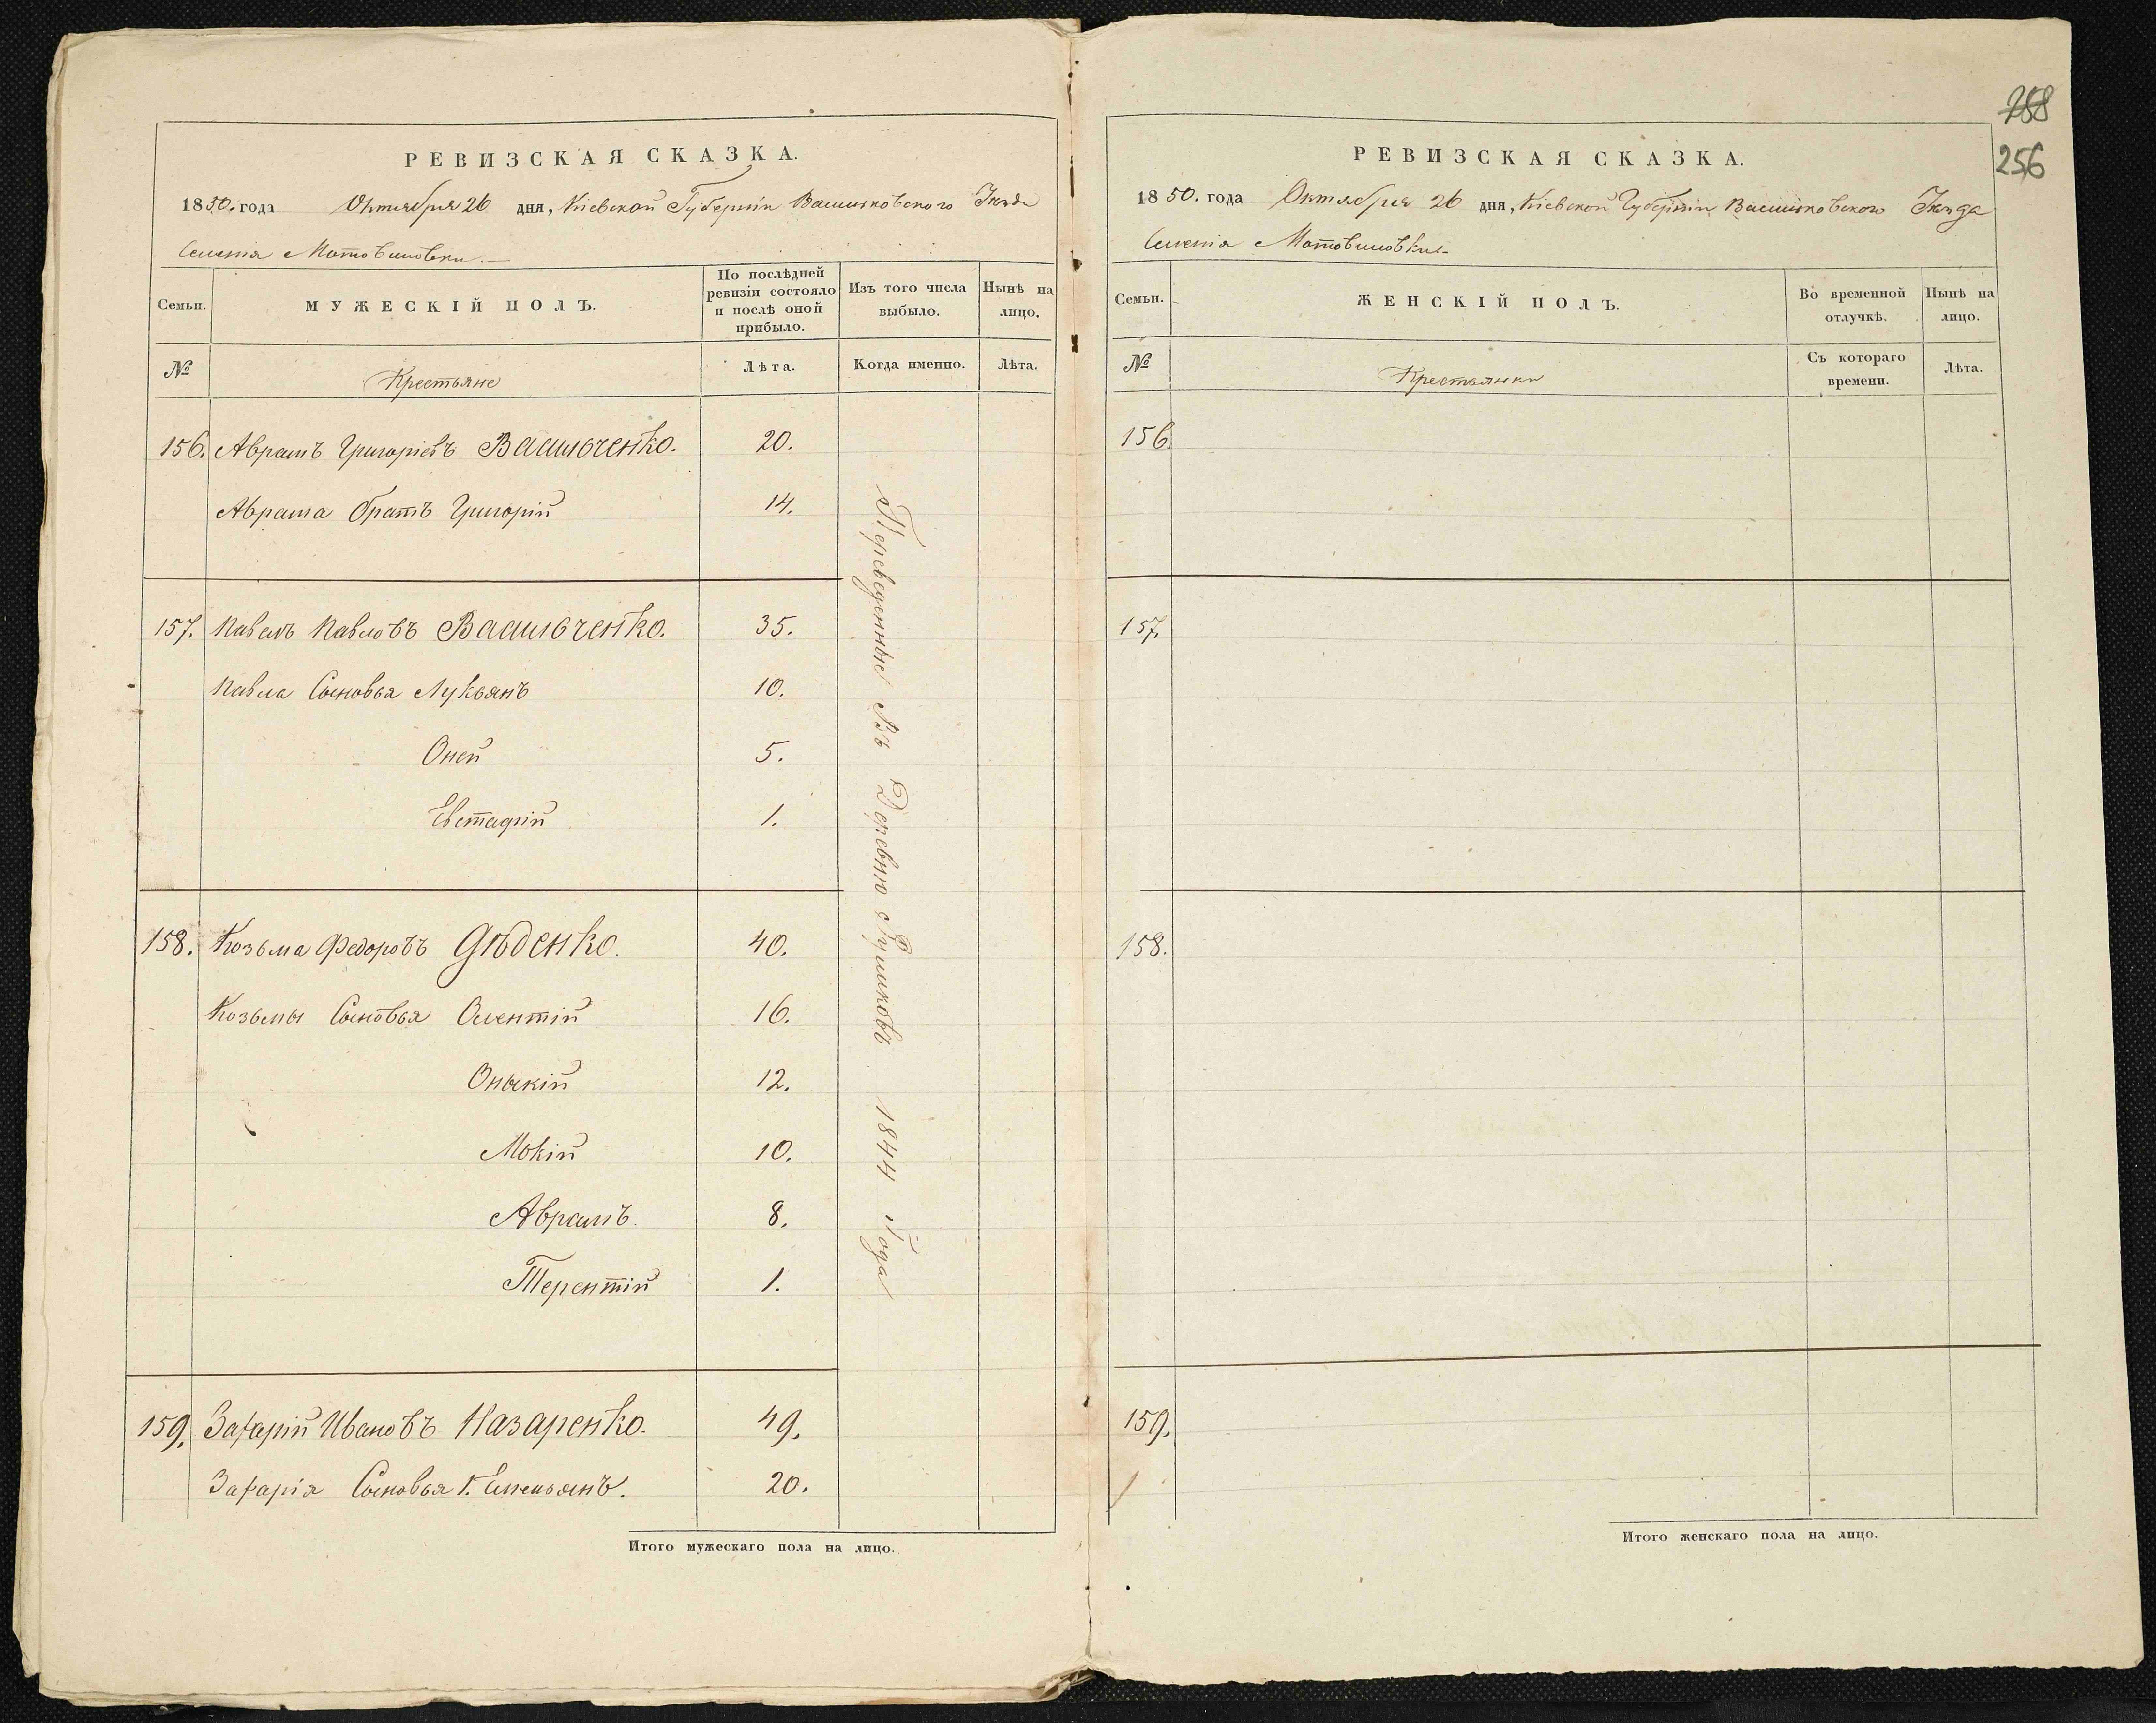 РЕВИЗСКАЯ СКАЗКА.
1850. года Октября 26 дня, Кіевской Губерніи Васильковского Уѣзда
Селенія Мотовиловки.
Семьи.
МУЖЕСКІЙ ПОЛЪ.
По послѣдней ревизіи состояло и послѣ оной прибыло.
Изъ того числа выбыло.
Нынѣ на лицо.
№
Крестьяне
Лѣта.
Когда именно.
Лѣта.
156. Аврамъ Григоріевъ Васильченко. 20.
Аврама братъ Григорій 14.
157. Павелъ Павловъ Васильченко. 35.
Павла Сыновья Лукьянъ 10.
Оней 5.
Евстафій 1.
158. Козьма Федоровъ Дѣденко. 40.
Козьмы Сыновья Олентій 16.
Оныкій 12.
Мокій 10.
Аврамъ 8.
Терентій 1.
159. Захарій Ивановъ Назаренко. 49.
Захарія Сыновья 1. Емельянъ. 20.
Переведенные Въ Деревню 1844 Года
Итого мужескаго пола на лицо.
258
256
РЕВИЗСКАЯ СКАЗКА.
1850. года Октября 26 дня, Кіевской Губерніи Васильковского Уѣзда
Селенія Мотовиловки
Семьи.
ЖЕНСКІЙ ПОЛЪ.
Во временной отлучкѣ.
Нынѣ на лицо.
№
Крестьянки
Съ котораго времени.
Лѣта.
156.
157.
158.
159.
Итого женскаго пола на лицо.